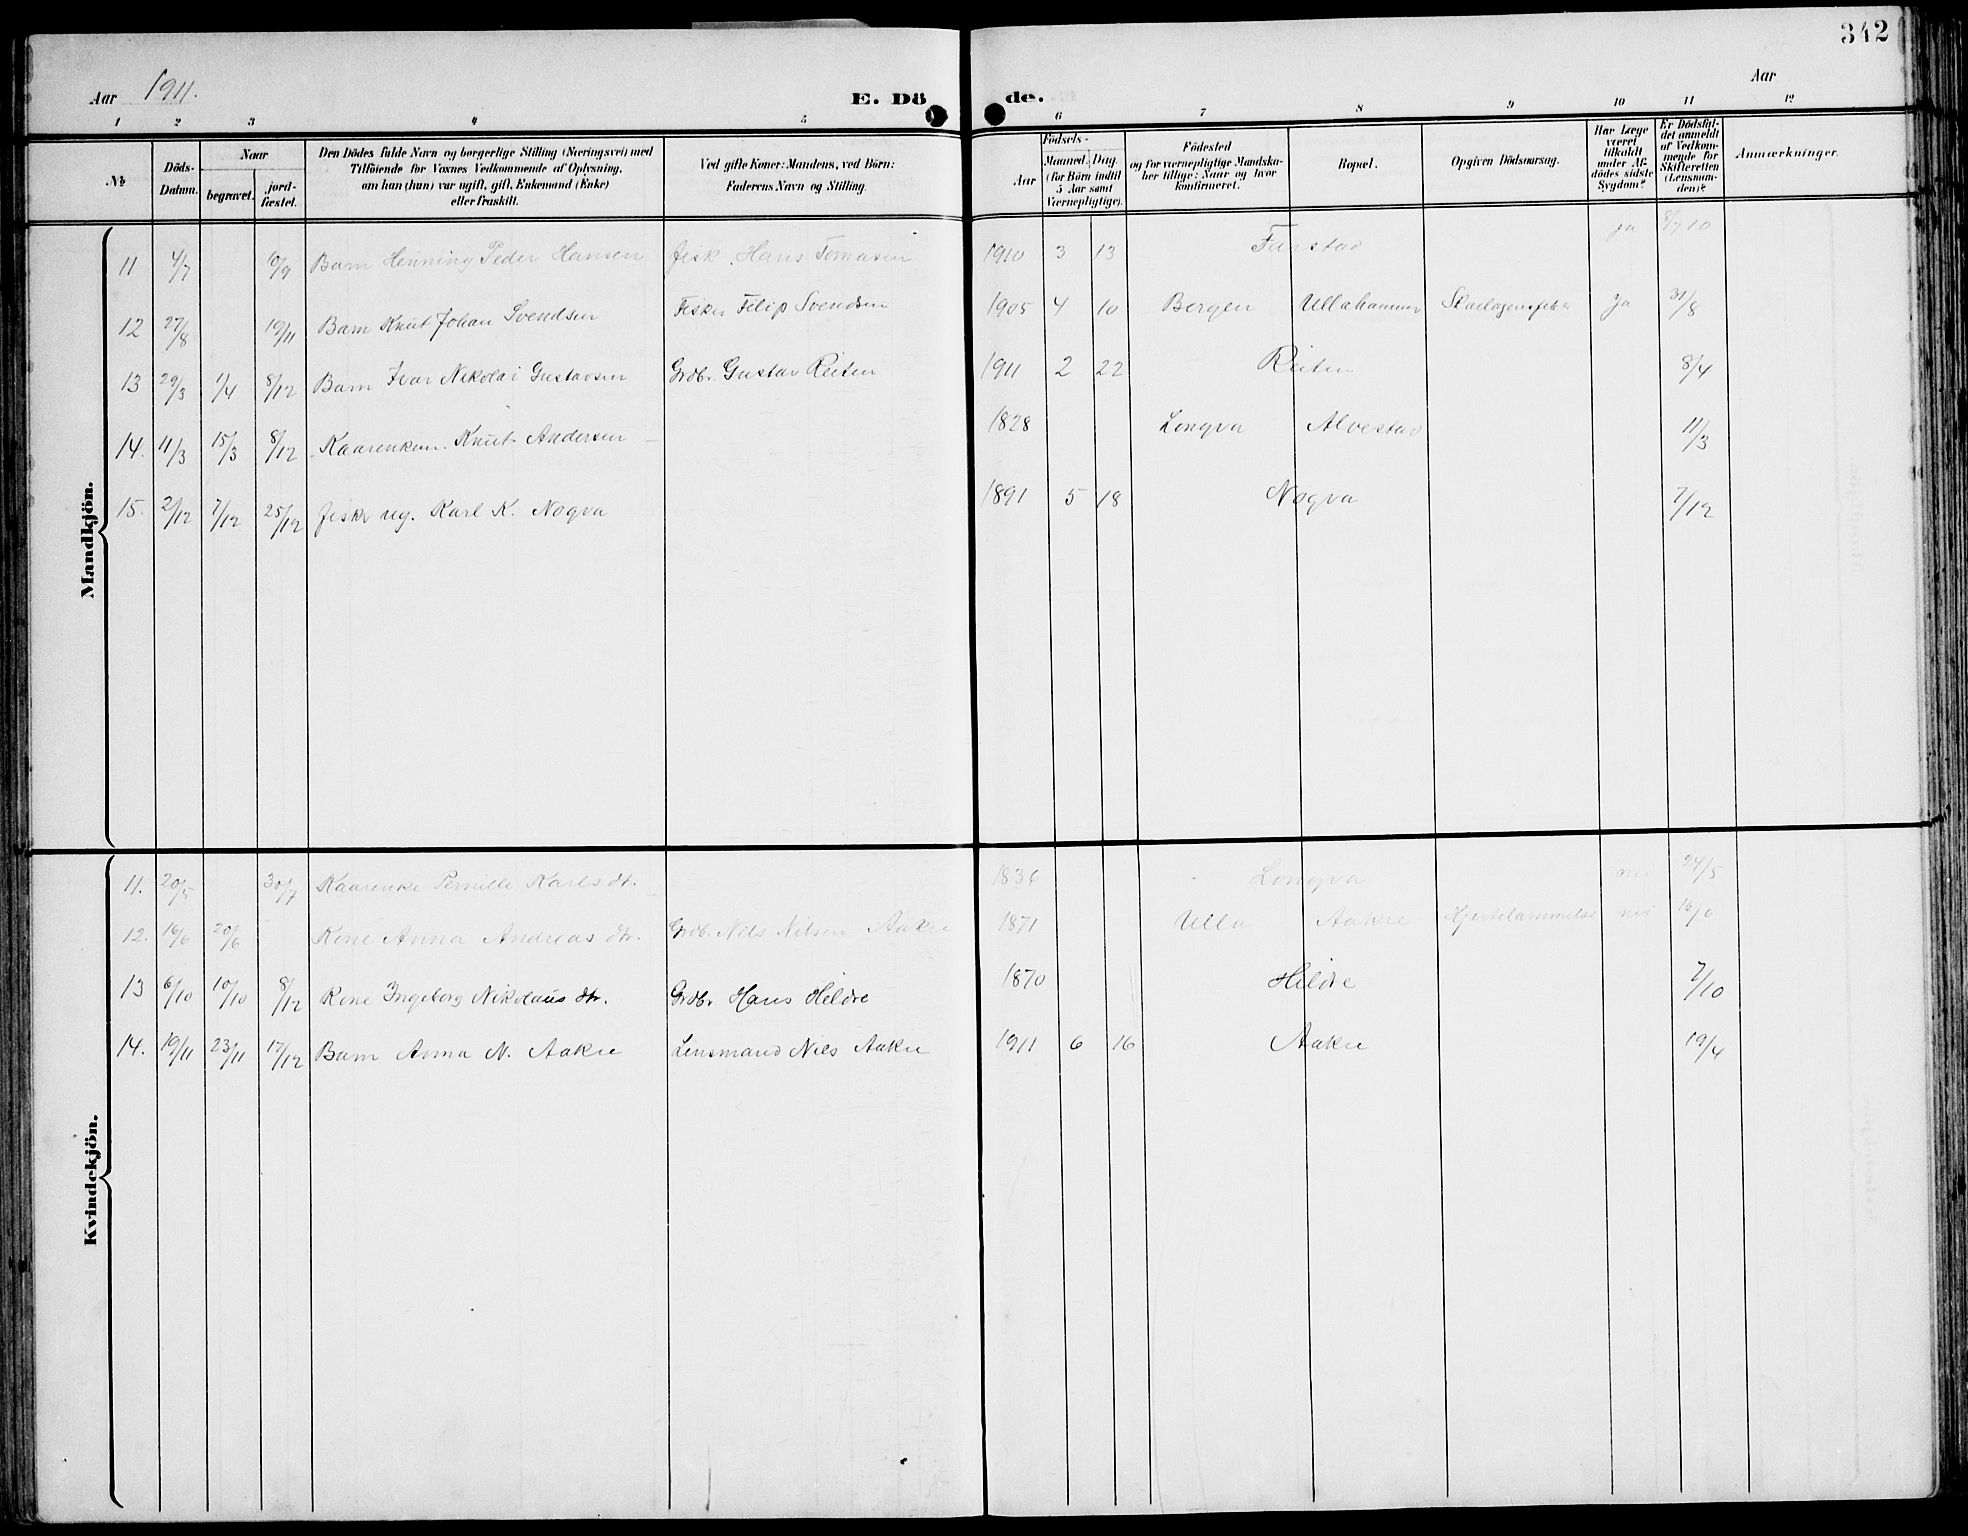 342
Aar 1911.
E. Dö de.
Aar
1 2 3 4 5 6 7 8 9 10 11 12
№
Döds-Datum.
Naar
begravet.
jord-fæstet.
Den Dödes fulde Navn og borgerlige Stilling (Næringsvei) med
Tilföiende for Voxnes Vedkommende af Oplysning,
om han (hun) var ugift, gift, Enkemand (Enke)
eller fraskilt.
Ved gifte Koner: Mandens, ved Börn:
Faderens Navn og Stilling.
Födsels-
Aar
Maaned. Dag.
(for Börn indtil
5 Aar samt
Værnepligtige).
Födested
og for værnepligtige Mandskaber tillige: Naar og hvor
konfirmeret.
Bopæl.
Opgiven Dödsaarsag.
Har Læge
været
tilkaldt
under Afdödes sidste
Sygdom?
Er Dödsfaldet anmeldt
af Vedkommende for
Skifteretten
(Lensmanden)?
Anmærkninger.
Mandkjön.
11 4/7 10/9 Barn Henning Peder Hansen Fisk. Hans Tomasen 1910 3 13 Farstad ja 8/7 10
12 27/8 19/11 Barn Knut Johan Svendsen Fisker Filip Svendsen 1905 4 10 Bergen Ullahammer ja 31/8
13 29/3 1/4 8/12 Barn Ivar Nikolai Gustavsen Grdbr. Gustav Reiten 1911 2 22 Reiten 8/4
14. 11/3 15/3 8/12 Kaarenkem. Knut Andersen 1828 Longva Alvestad 11/3
15. 2/12 7/12 25/12 Fisker ug. Karl K. Nogva 1891 5 18 Nogva 7/12
Kvindekjön.
11. 20/5 30/7 Kaarenke Pernille Karlsdtr. 1836 Longva nei 24/5
12. 16/6 20/6 Kone Anna Andreasdtr. Grdb. Nils Nilsen Aakre 1871 Ulla Aakre Hjertelammelse nei 16/6
13 6/10 10/10 8/12 Kone Ingeborg Nikolausdtr. Grdbr. Hans Hildre 1870 Hildre 7/10
14. 19/11 23/11 17/12 Barn Anna N. Aakre Lensmand Nils Aakre 1911 6 16 Aakre 19/4